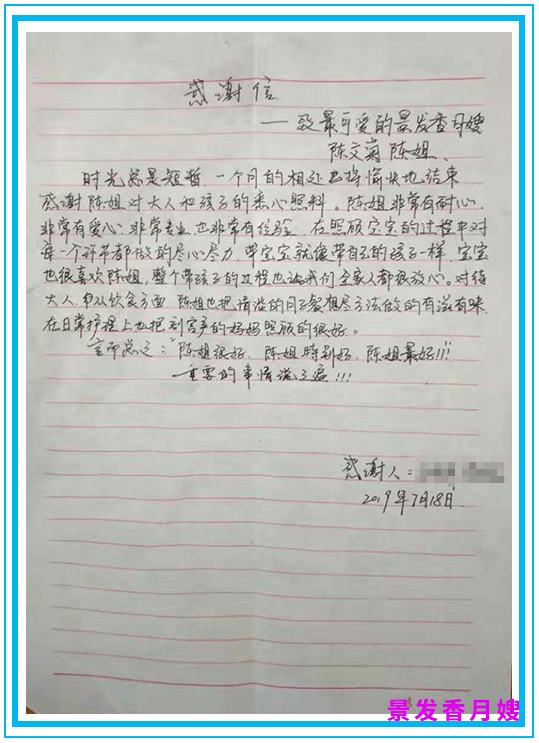 感谢信
——致最可爱的景发香月嫂
陈文菊 陈姐、
时光总是短暂,一个月的相处也将愉快地结束
感谢陈姐对大人和孩子的悉心照料。陈姐非常有耐心,
非常有爱心,非常专业,也非常有经验,在照顾宝宝的过程中对
每一个环节都做的尽心尽力,带宝宝就像带自己的孩子一样,宝宝
也很喜欢陈姐,整个带孩子的过程也让我们全家人都很放心。对待
大人,也从饮食方面 陈姐也把清淡的月子餐想尽方法做的有滋有味,
在日常护理上也把剖宫产的妈妈照顾的很好。
言而总之:"陈姐很好,陈姐特别好,陈姐最好!!!
重要的事情说三遍!!!
感谢人:
2019年7月18日.
景发香月嫂